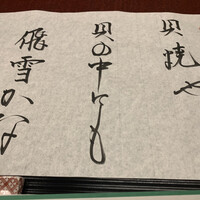 貝焼や
貝の中にも
飛雪かな